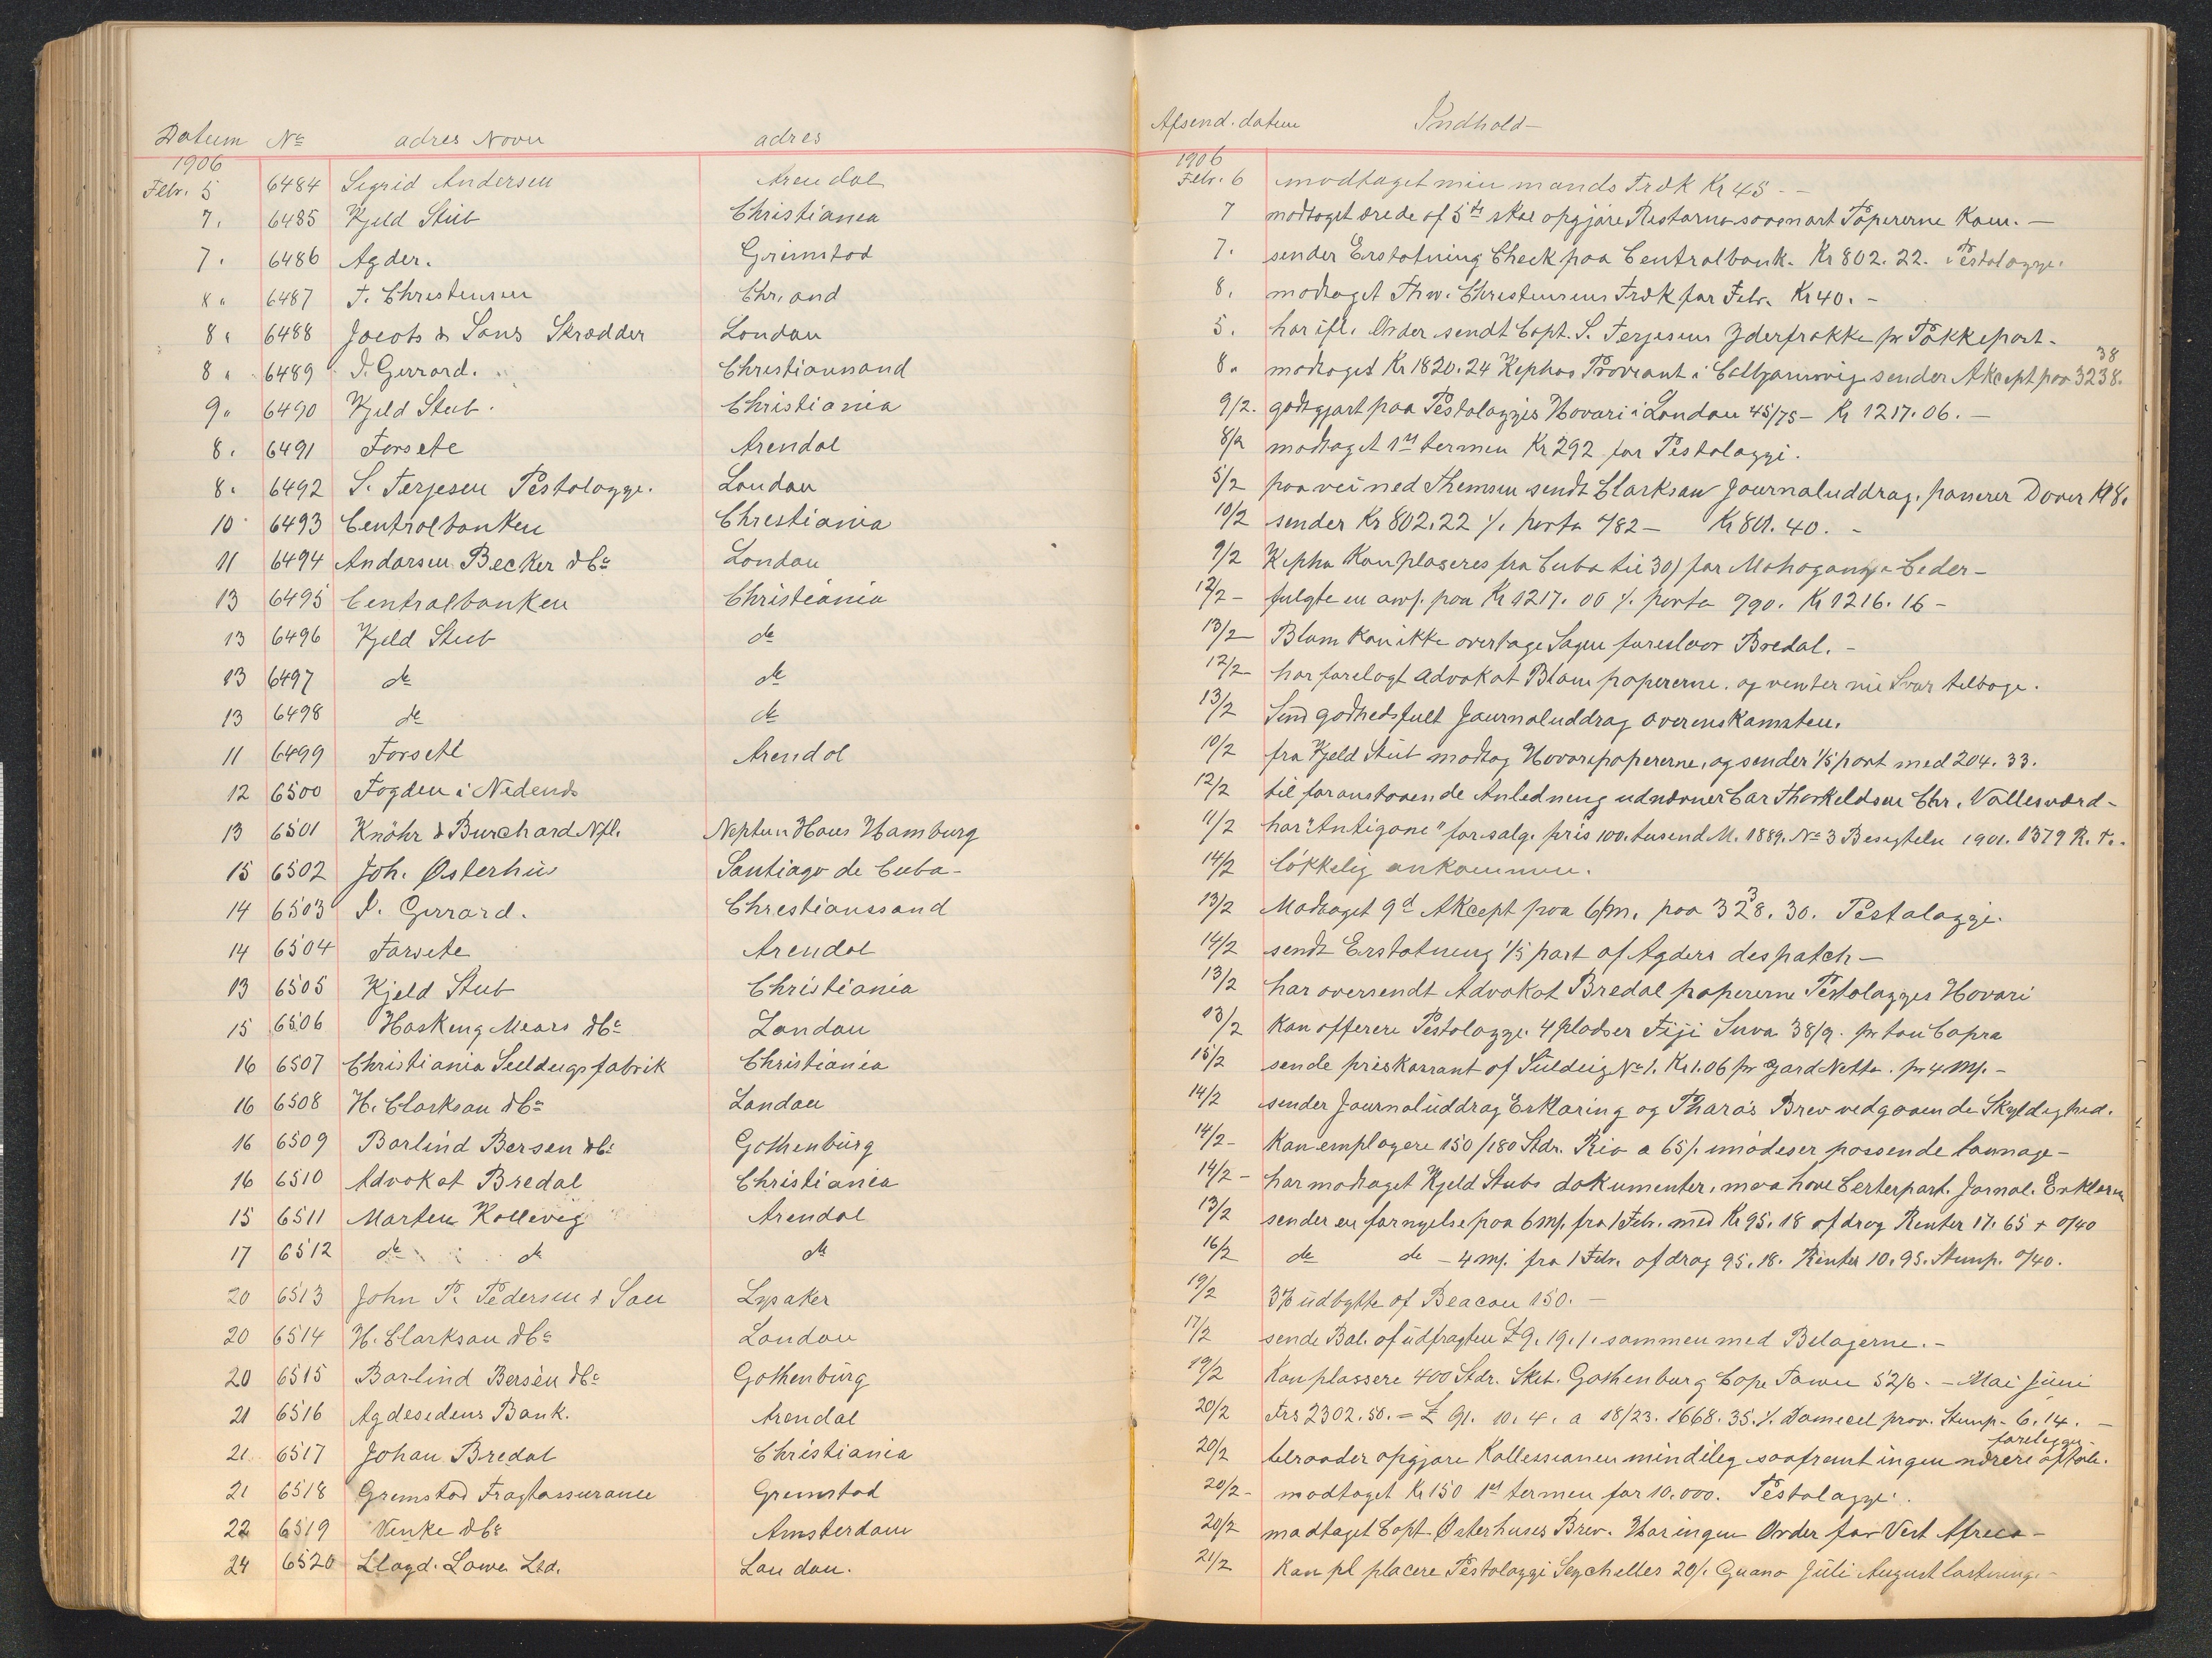 Datum No adres Navn adres Afsend. datum Indhold
1906 1906
Febr. 5 6484 Sigrid Andersen Arendal Febr. 6 modtaget min mands Træk Kr 45 - -
7. 6485 Kjeld Stub Christiania 7 modtaget ærede af 5te skal opgjøre Restarna saasnart Papererne Kom. -
7. 6486 Agder. Grimstad 7. sender Erstatning Check paa Centralbank. Kr 802. 22. Pestalozzi.
8. 6487 T. Christensen Chr. and 8. modtaget Thv. Christensens Træk for Febr. Kr 40. -
8. 6488 Jacobs & Sons Skrædder London 5. har ifl. Order sendt Capt. S. Terjesens Yderfrakke pr Pakkepost -
8. 6489 I. Gerrard. Christianssand 8. modtaget Kr 1820. 24 Kephas Proviant i sender Akcept paa 3238. 38
9. 6490 Kjeld Stub. Christiania 9/2. godtgjort paa Pestalozzis Hovari i London 45/75 - Kr 1217. 06. -
8. 6491 Forsete Arendal 8/2 modtaget 1ste termin Kr 292 for Pestalozzi.
8. 6492 S. Terjesen Pestalozzi. London 5/2 paa vei ned Themsen sendt Clarkson Journaluddrag. passerer Dover Kl 8.
10 6493 Centralbanken Christiania 10/2 sender Kr 802. 22 ./. porto 0/82 - Kr 801. 40. -
11 6494 Andersen Becker & Co London 9/2 Kepha Kan plaseres fra Cuba til 30/ for Mahogany & Ceder -
13 6495 Centralbanken Christiania 12/2 - fulgte en anv. paa Kr 1217. 06 ./. porto 0/90. Kr 1216. 16 -
13 6496 Kjeld Stub do 13/2 - Blom Kan ikke overtage Sagen foreslaar Bredal. -
13 6497 do do 12/2 - har forelagt Advokat Blom papererne. og venter nu Svar tilbage.
13 6498 do do 13/2 Send godhedsfult Journaluddrag overenskomsten.
11 6499 Forsete Arendal 10/2 fra Kjeld Stub modtog Hovaripapererne, og sender 1/5 part med 204. 33.
12 6500 Fogden i Nedenes 12/2 til foranstaaende Anledning udnævner Carsten Thorkeldsen Chr. Vollesværd -
13 6501 Knöhr & Burchard Nfl. Neptun Haus Hamburg 11/2 har "Antigone" for salg. pris 100. tusend M. 1889. No 3 Besigteln 1901. 1379 R. T. -
15 6502 Joh. Østerhus Santiago de Cuba - 14/2 lökkelig ankommen.
14 6503 I. Gerrard. Christianssand 13/2 Modtaget 9d Akcept paa 6/m. paa 3238. 38. Pestalozzi.
14 6504 Forsete Arendal 14/2 sendt Erstatning 1/5 part af Agders despatch -
13 6505 Kjeld Stub Christiania 13/2 har oversendt Advokat Bredal papererne Pestalozzis Hovari
15 6506 Hosking Mears & Co London 13/2 Kan offerere Pestalozzi 4 pladser Fiji Suva 38/9. pr ton Copra
16 6507 Christiania Seildugsfabrik Christiania 15/2 sende priskorrant af Seildug No 1. Kr 1.06 pr yard Netto. pr 4 M/. -
16 6508 H. Clarkson & Co London 14/2 sender Journaluddrag Erklæring og Pharo's Brev vedgaaende Skyldighed.
16 6509 Barlind Bersen & Co Gothenburg 14/2 - Kan employere 150/180 Stdr. Rio a 65/. imødeser passende tonnage -
16 6510 Advokat Bredal Christiania 14/2 - har modtaget Kjeld Stubs dokumenter, maa have Certepart. Jornal. Erklæring
15 6511 Marten Kallevig Arendal 13/2 sender en fornyelse paa 6 M/. fra 1 Febr. med Kr 95. 18 afdrag Renter 17. 65 + 0/40
17 6512 do do do 16/2 do do - 4 M/. fra 1 Febr. afdrag 95. 18. Renter 10. 95. Stemp. 0/40.
20 6513 John P. Pedersen & Søn Lysaker 19/2 3% udbytte af Beacon 150. -
20 6514 H. Clarkson & Co London 17/2 sende Bal. af udfragten £ 9. 19. 1. sammen med Belagerne. -
20 6515 Barlind Bersén & Co Gothenburg 19/2 Kan plassere 400 Stdr. Sket. Gothenburg Cape Town 52/6. - Mai Juni
21 6516 Agdesidens Bank. Arendal 20/2 Frs 2302. 50. = £ 91. 10. 4. a 18/23. 1668. 35. ./. Domicil prov. Stemp - 6. 14. -
21 6517 Johan Bredal Christiania 20/2 tilraader opgjøre Kollessionen mindelig saafremt ingen nærere aftale. foreligge -
21 6518 Grimstad Fragtassurance Grimstad 20/2 - modtaget Kr 150 1ste termin for 10.000. Pestalozzi.
22 6519 Vinke & Co Amsterdam 20/2 modtaget Capt. Østerhuses Brev. Har ingen Order for Vest Africa -
24 6520 Lloyd. Lowe Ltd. London. 21/2 Kan pl placere Pestalozzi Seycheller 20/. Guano Juli August lastning. -